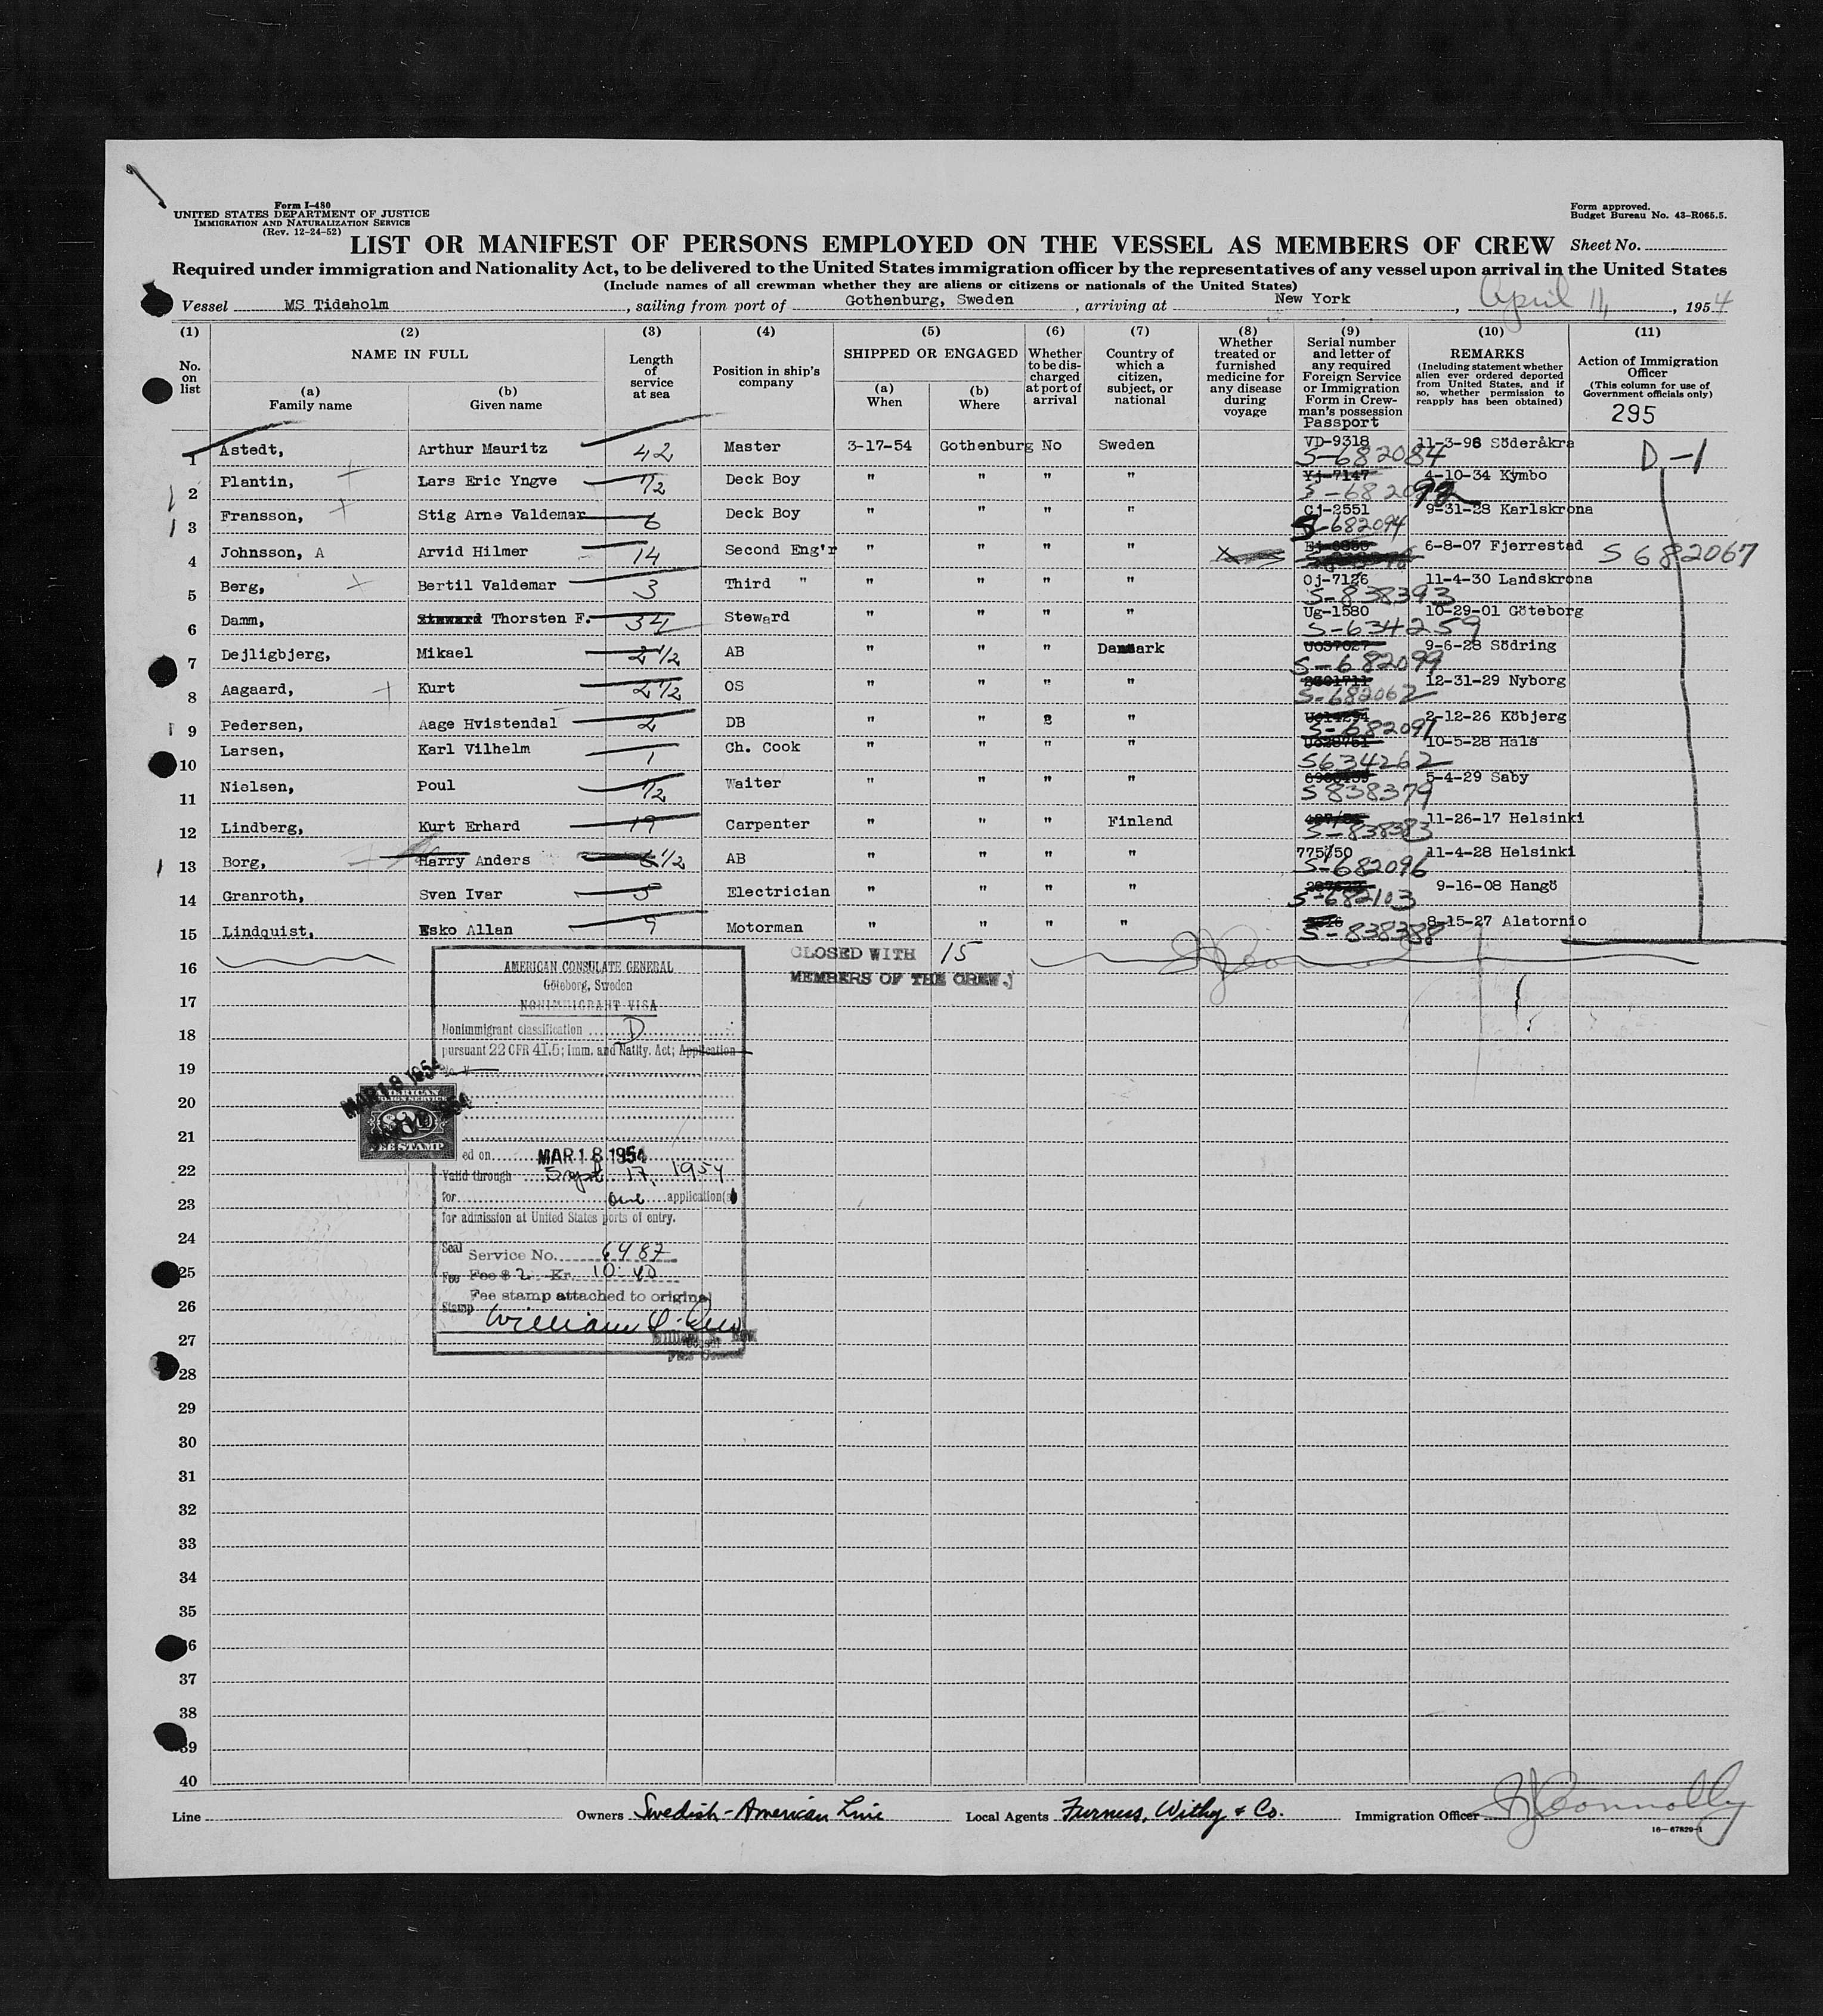 Form I-480
UNITED STATES DEPARTMENT OF JUSTICE
IMMIGRATION AND NATURALIZATION SERVICE
(Rev. 12-24-52)
Form approved.
Budget Bureau No. 43-R065.5.
LIST OR MANIFEST OF PERSONS EMPLOYED ON THE VESSEL AS MEMBERS OF CREW Sheet No.
Required under immigration and Nationality Act, to be delivered to the United States immigration officer by the representatives of any vessel upon arrival in the United States
(Include names of all crewman whether they are aliens or citizens or nationals of the United States)
Vessel MS Tidaholm, sailing from port of Gothenburg, Sweden, arriving at New York, April 11, 1954
(1) (2) (3) (4) (5) (6) (7) (8) (9) (10) (11)
No. on list
NAME IN FULL
(a) Family name
(b) Given name
Length of service at sea
Position in ship's company
SHIPPED OR ENGAGED
(a) When
(b) Where
Whether to be discharged at port of arrival
Country of which a citizen, subject, or national
Whether treated or furnished medicine for any disease during voyage
Serial number and letter of any required Foreign Service or Immigration Form in Crewman's possession
Passport
REMARKS
(Including statement whether alien ever ordered deported from United States, and if so, whether permission to reapply has been obtained)
Action of Immigration Officer
(This column for use of Government officials only)
295
1 Åstedt, Arthur Mauritz 42 Master 3-17-54 Gothenburg No Sweden VD-9318 S-682084 11-3-98 Söderåkra D-1
2 Plantin, Lars Eric Yngve 1/2 Deck Boy " " " " Yj-7147 4-10-34 Kymbo
3 Fransson, Stig Arne Valdemar 6 Deck Boy " " " " Cj-2551 S-682094 9-31-28 Karlskrona
4 Johnsson, A Arvid Hilmer 14 Second Eng'r " " " " X 6-8-07 Fjerrestad S 682067
5 Berg, Bertil Valdemar 3 Third " " " " " Oj-7126 S-838393 11-4-30 Landskrona
6 Damm, Steward Thorsten F. 34 Steward " " " " Ug-1580 S-634259 10-29-01 Göteborg
7 Dejligbjerg, Mikael 2 1/2 AB " " " Danmark S-682099 9-6-28 Södring
8 Aagaard, Kurt 2 1/2 OS " " " " S-682062 12-31-29 Nyborg
9 Pedersen, Aage Hvistendal 2 DB " " " " S-682091 2-12-26 Köbjerg
10 Larsen, Karl Vilhelm 1 Ch. Cook " " " " S634262 10-5-28 Hals
11 Nielsen, Poul 1/2 Waiter " " " " S838379 5-4-29 Saby
12 Lindberg, Kurt Erhard 19 Carpenter " " " Finland S-838383 11-26-17 Helsinki
13 Borg, Harry Anders 6 1/2 AB " " " " 775/50 S-682096 11-4-28 Helsinki
14 Granroth, Sven Ivar 5 Electrician " " " " S-682103 9-16-08 Hangö
15 Lindquist, Esko Allan 9 Motorman " " " " S-838388 8-15-27 Alatornio
CLOSED WITH 15
MEMBERS OF THE CREW.
16
17
18
19
20
21
22
23
24
25
26
27
28
29
30
31
32
33
34
35
36
37
38
39
40
AMERICAN CONSULATE GENERAL
Göteborg, Sweden
NONIMMIGRANT VISA
Nonimmigrant classification D
pursuant 22 CFR 41.5; Imm. and Natlty. Act; Application
No. V
MAR 18 1954
AMERICAN
FOREIGN SERVICE
FEE STAMP
ed on MAR 18 1954
Valid through Sept 17, 1954
for one application(s)
for admission at United States ports of entry.
Seal Service No. 6487
Fee Fee $ 2 Kr. 10:40
Fee stamp attached to original
Stamp
Line Owners Swedish-American Line Local Agents Furness, Withy & Co. Immigration Officer Connolly
16-67829-1